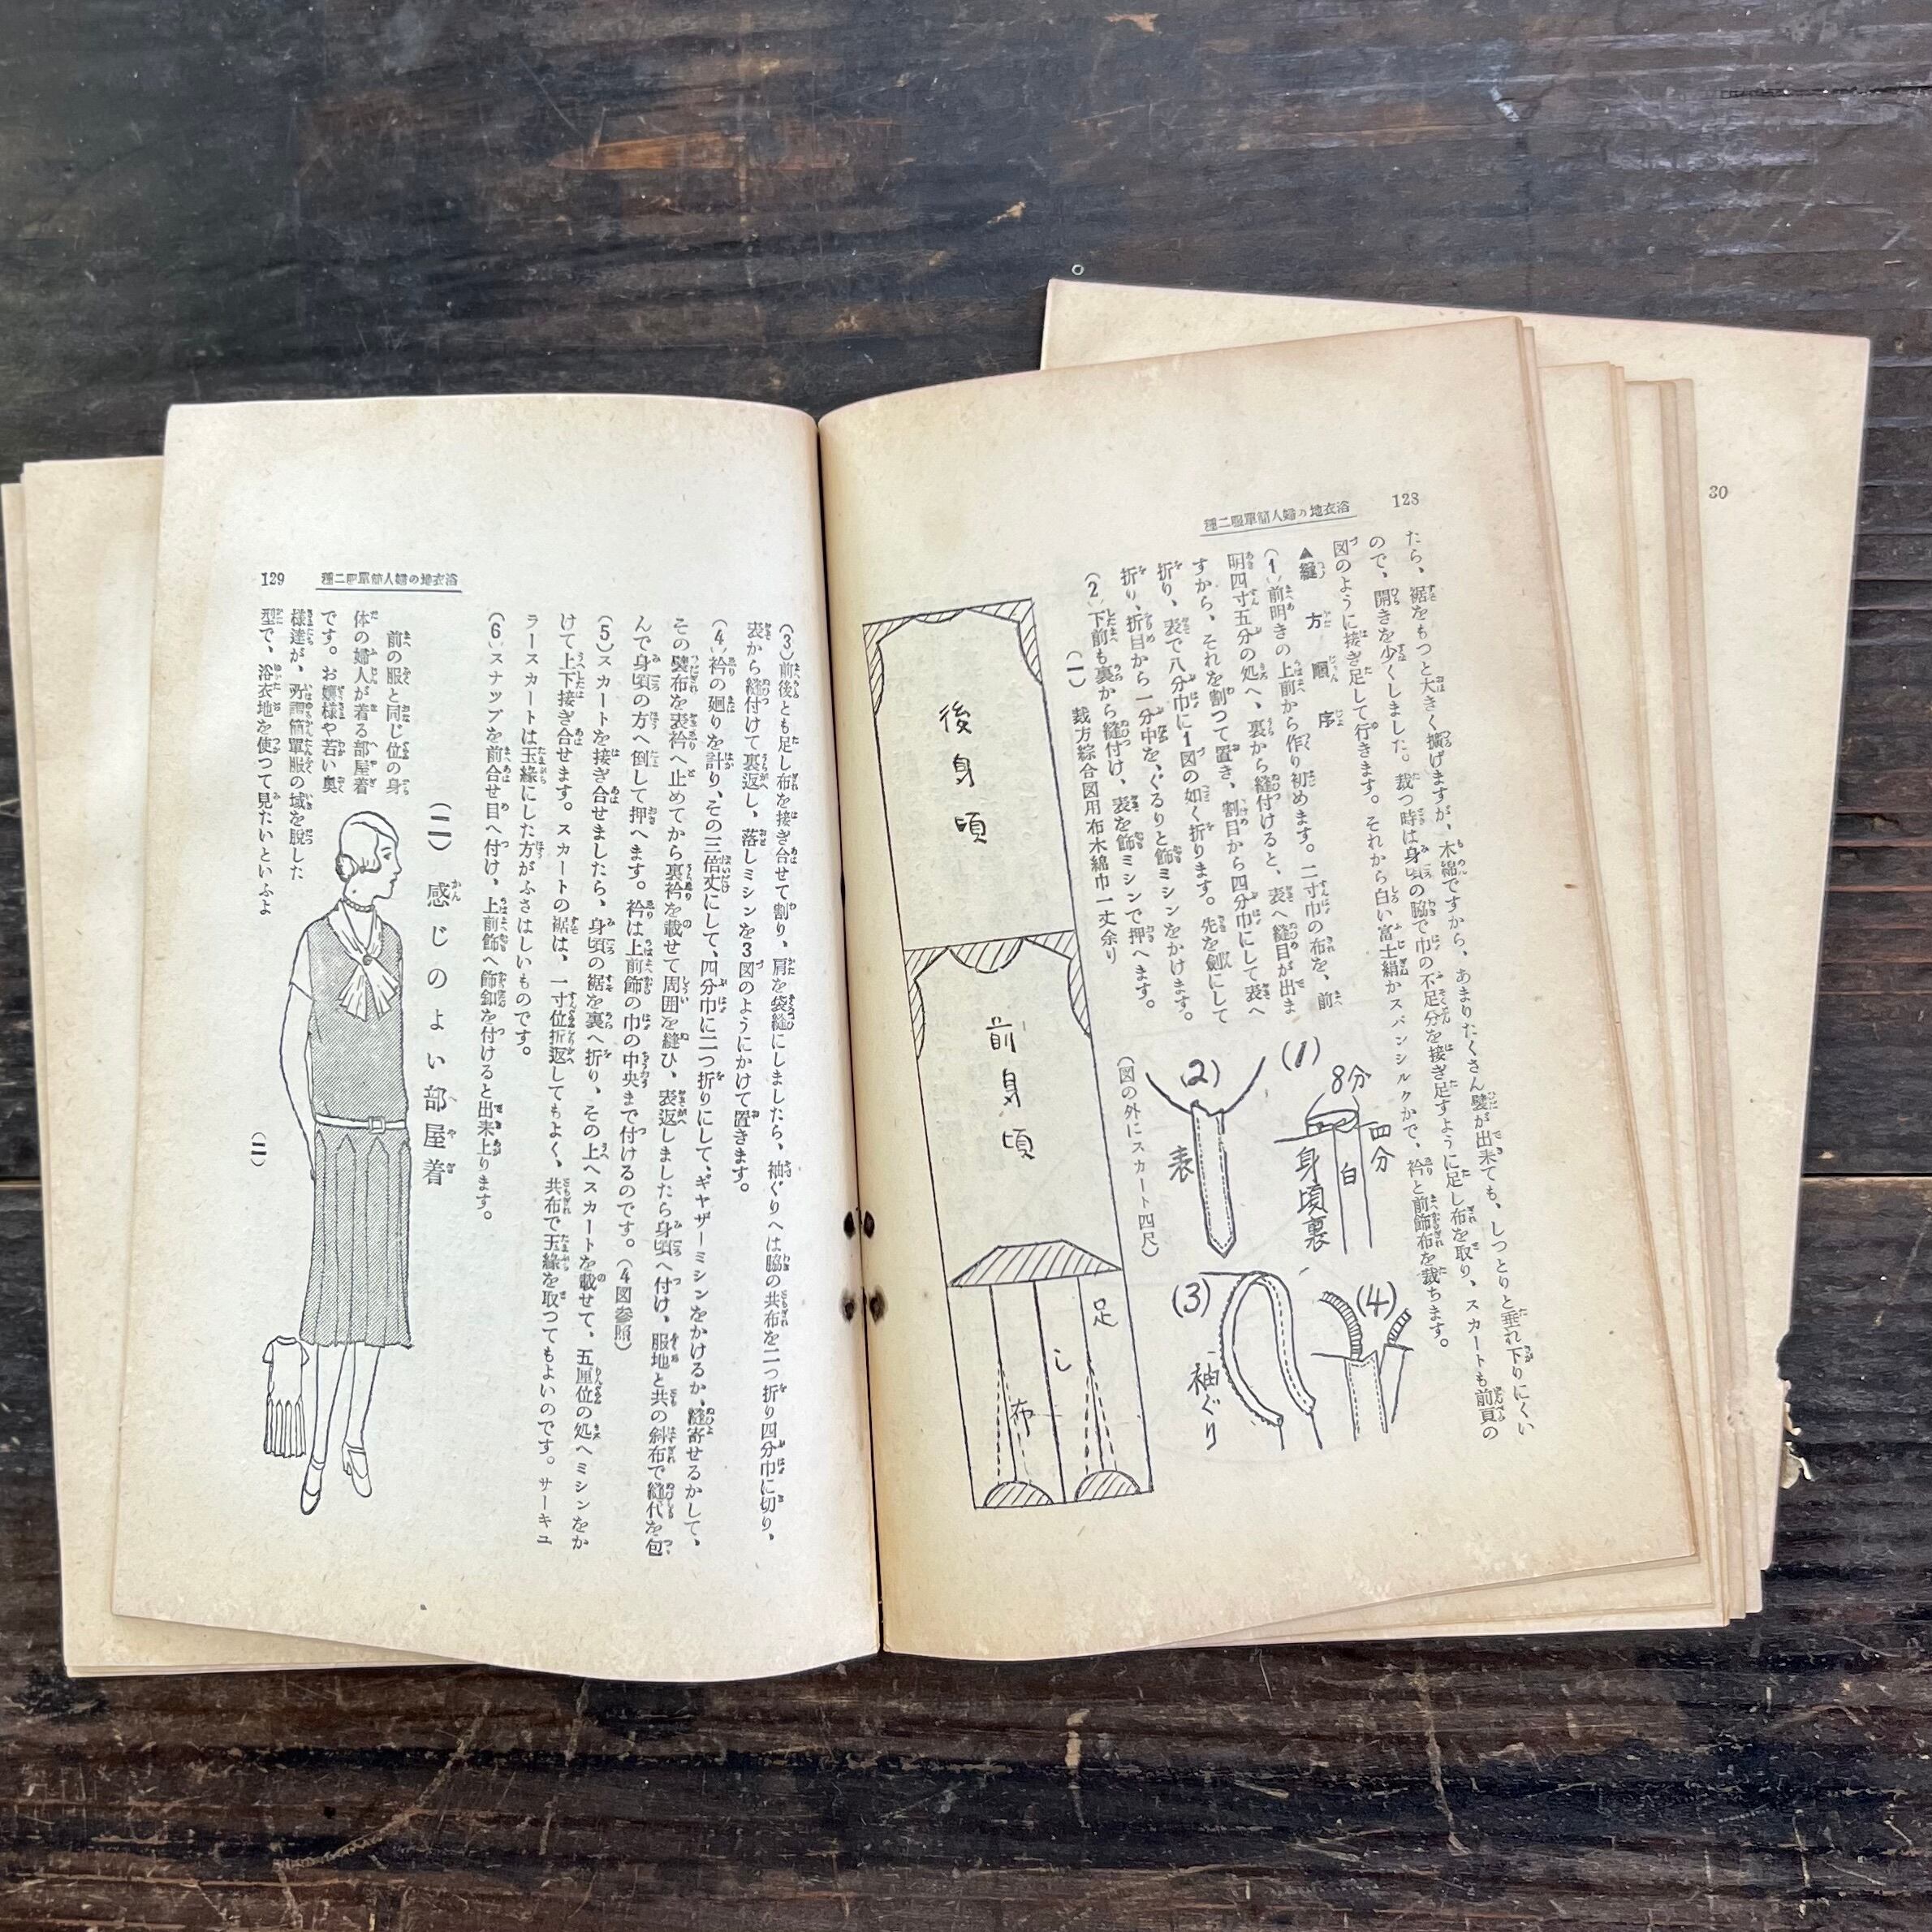 30
128
浴衣地の婦人簡單服二種
たら、裾をもつと大きく擴げますが、木綿ですから、あまりたくさん襞が出来ても、しつとりと垂れ下りにくい
ので、開きを少くしました。裁つ時は身頃の脇で巾の不足分を接ぎ足すように足し布を取り、スカートも前頁の
図のように接ぎ足して行きます。それから白い富士絹かスパンシルクかで、衿と前飾布を裁ちます。
▲縫方順序
(1)前明きの上前から作り初めます。二寸巾の布を、前
明四寸五分の処へ、裏から縫付けると、表へ縫目が出ま
すから、それを割つて置き、割目から四分巾にして表へ
折り、表で八分巾に1図の如く折ります。先を劍にして
折り、折目から一分中を、ぐるりと飾ミシンをかけます。
(2)下前も裏から縫付け、表を飾ミシンで押へます。
(一)裁方綜合図用布木綿巾一丈余り
(図の外にスカート四尺)
後身頃
前身頃
足し布
(1)
8分
四分
白
身頃裏
(2)
表
(3)
袖ぐり
(4)
129
浴衣地の婦人簡單服二種
(3)前後とも足し布を接ぎ合せて割り、肩を袋縫にしましたら、袖ぐりへは脇の共布を二つ折り四分巾に切り、
表から縫付けて裏返し、落しミシンを3図のようにかけて置きます。
(4)衿の廻りを計り、その三倍丈にして、四分巾に二つ折りにして、ギャザーミシンをかけるか、縫寄せるかして、
その襞布を表衿へ止めてから裏衿を載せて周囲を縫ひ、表返しましたら身頃へ付け、服地と共の斜布で縫代を包
んで身頃の方へ倒して押へます。衿は上前飾の巾の中央まで付けるのです。(4図参照)
(5)スカートを接ぎ合せましたら、身頃の裾を裏へ折り、その上へスカートを載せて、五厘位の処へミシンをか
けて上下接ぎ合せます。スカートの裾は、一寸位折返してもよく、共布で玉縁を取つてもよいのです。サーキュ
ラースカートは玉縁にした方がふさはしいものです。
(6)スナップを前合せ目へ付け、上前飾へ飾釦を付けると出来上ります。
(二)感じのよい部屋着
前の服と同じ位の身
体の婦人が着る部屋着
です。お嬢様や若い奥
様達が、所謂簡單服の域を脱した
型で、浴衣地を使つて見たいといふよ
(二)